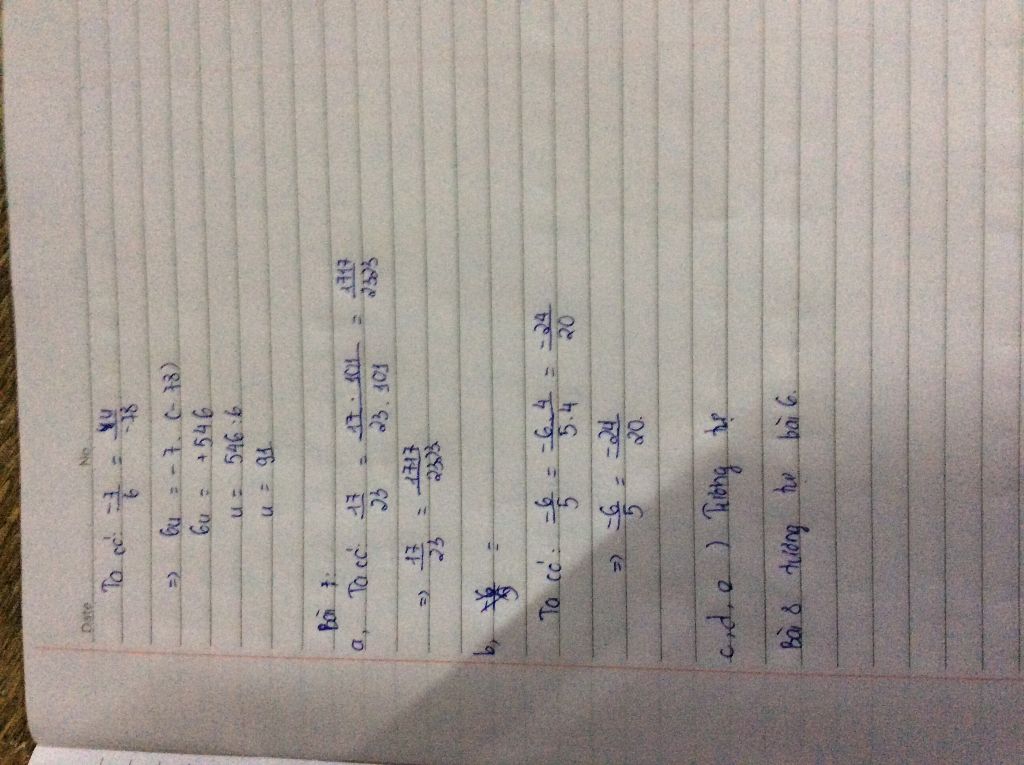 Date No.
Ta có: -7/6 = u/-78
=) 6u = -7. (-78)
6u = +546
u = 546:6
u = 91
Bài 7:
a, Ta có: 17/23 = 17.101/23.101 = 1717/2323
=) 17/23 = 1717/2323
b, =
Ta có: -6/5 = -6.4/5.4 = -24/20
=) -6/5 = -24/20
c,d,e) Tương tự
Bài 8 tương tự bài 6.